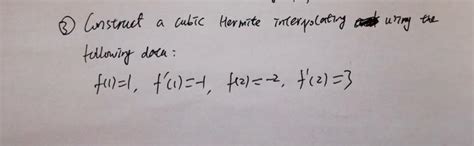 ③ Construct a cubic Hermite interpolating using the
following data:
f(1)=1, f'(1)=-1, f(2)=-2, f'(2)=3